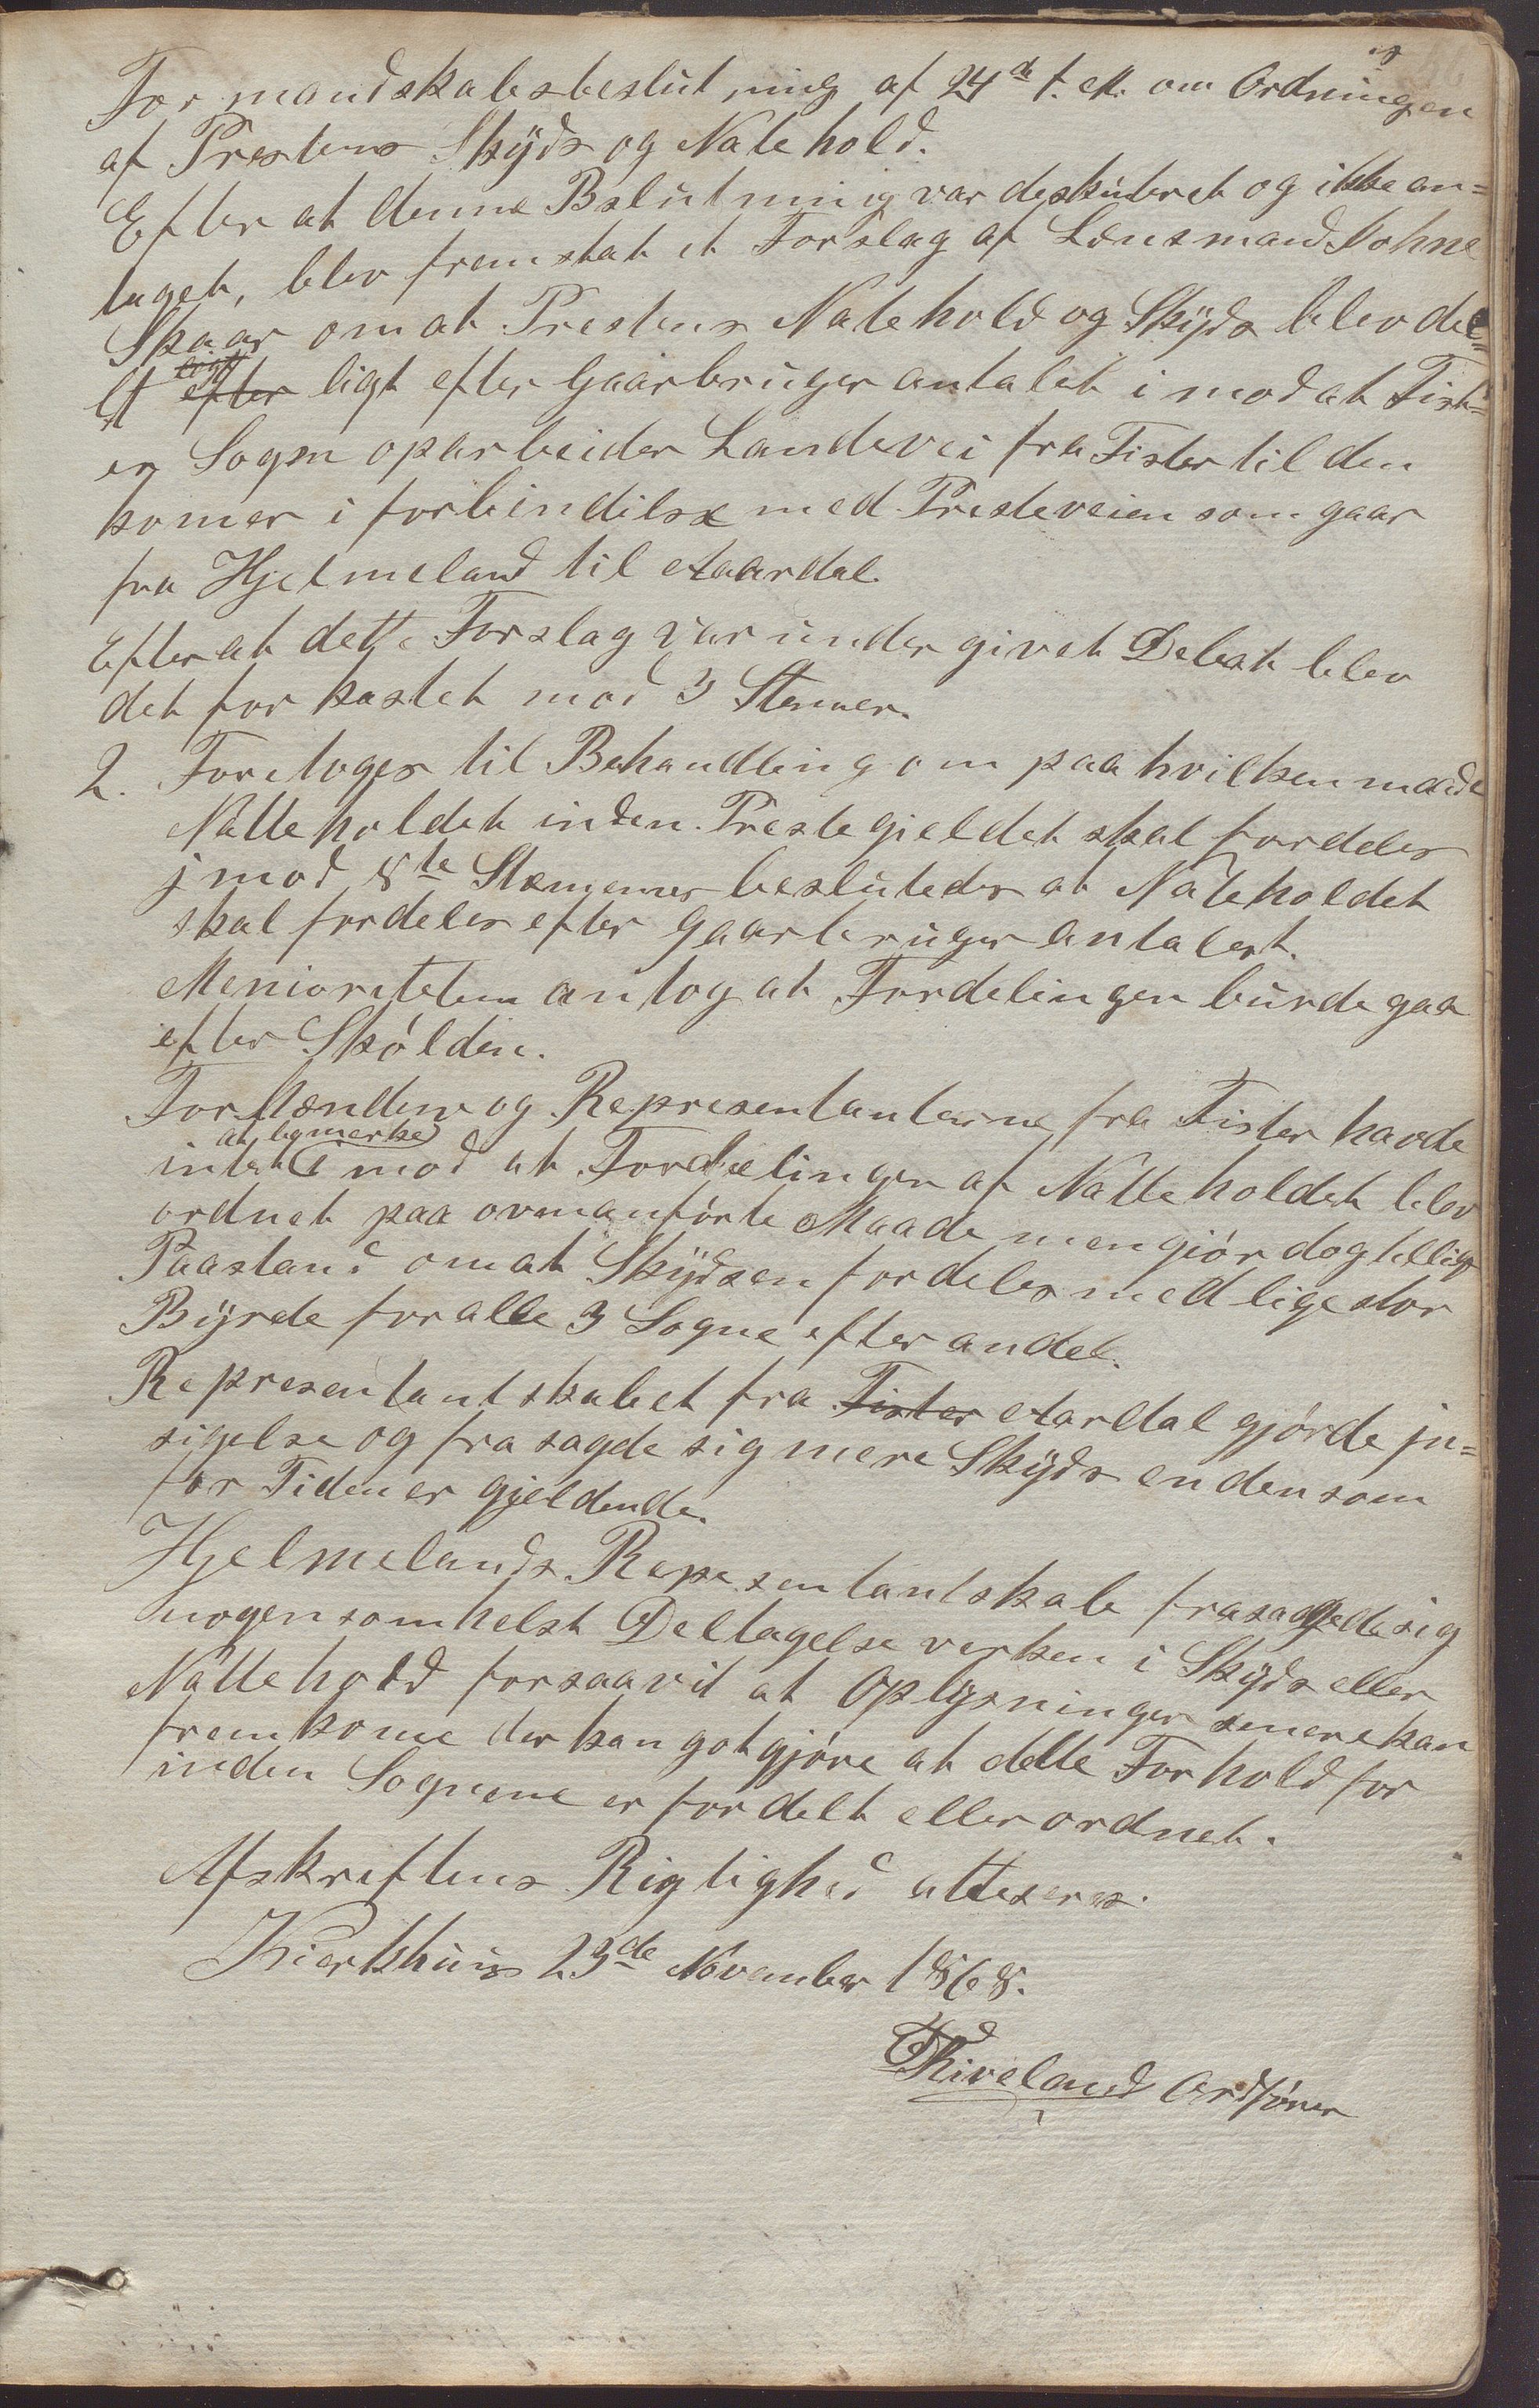 Formandskabsbeslutning af 24de f. M. om Ordningen
af Prestens Skÿds og Natehold.
Efter at denne Beslutning var deskuteret og ikke an-
taget, blev fremstat et Forslag af Lensmand Johne
Skaar om at Prestens Natehold og Skÿds blev del-
lt efter ligt efter Gaarbruger antalet imod at Fist-
er Sogn oparbeider Landevei fra Fister til den
komer i forbindilse med Presteveien som gaar
fra Hjelmeland til Aardal.
Efter at dette Forslag var under givet Debat blev
det forkastet mod 3 Stemer.
2. Foretoges til Behandling om paa hvilken maade
Natteholdet inden Prestegjeldet skal fordeles
jmod 8te Stemmer besluttedes at Nateholdet
skal fordeles efter Gaarbruger antalet.
Menioriteten antog at Fordelingen burde gaa
efter Skylden.
Formændene og Representanterne fra Fister havde
at bemerke
intet imod at Fordelingen af Natteholdet blev
ordnet paa ovenanførte Maade men gjør dog tillige
Paastand om at Skÿdsen fordeles med lige stor
Bÿrde for alle 3 Sogne efter andel.
Representantskabet fra Fister Aardal gjørde in-
sigelse og fra sagde sig mere Skÿds en den som
for Tiden er gjeldende.
Hjelmelands Repesentantskab frasagde sig
nogensomhelst Deltagelse verken i Skÿds eller
Nattehold forsaavit at Oplysninger senere kan
fremkome der kan gotgjøre at dette Forhold for
inden Sognene er fordelt eller ordnet.
Afskriftens Rigtighed atteseres.
Kierkhuus 23de November 1868.
Thiveland Ordfører